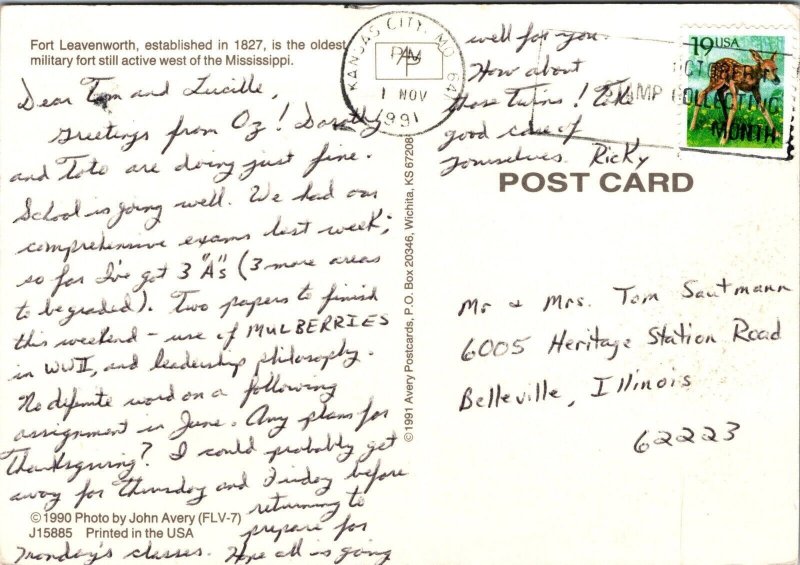 Fort Leavenworth, established in 1827, is the oldest
military fort still active west of the Mississippi.
Dear Tom and Lucille,
Greetings from Oz! Dorothy
and Toto are doing just fine.
School is going well. We had our
comprehensive exams last week;
so far I've got 3 "A"s (3 more areas
to be graded). Two papers to finish
this weekend - use of MULBERRIES
in WWII, and leadership philosophy.
No definite word on a following
assignment in June. Any plans for
Thanksgiving? I could probably get
away for Thursday and Friday before
returning to
prepare for
Monday's classes. Hope all is going
well for you.
How about
those Twins! Take
good care of
yourselves. Ricky
© 1990 Photo by John Avery (FLV-7)
J15885 Printed in the USA
© 1991 Avery Postcards, P.O. Box 20346, Wichita, KS 67208
KANSAS CITY, MO 641
PM
1 NOV
1991
OCTOBER IS
STAMP COLLECTING
MONTH
19 USA
POST CARD
Mr & Mrs. Tom Sautmann
6005 Heritage Station Road
Belleville, Illinois
62223